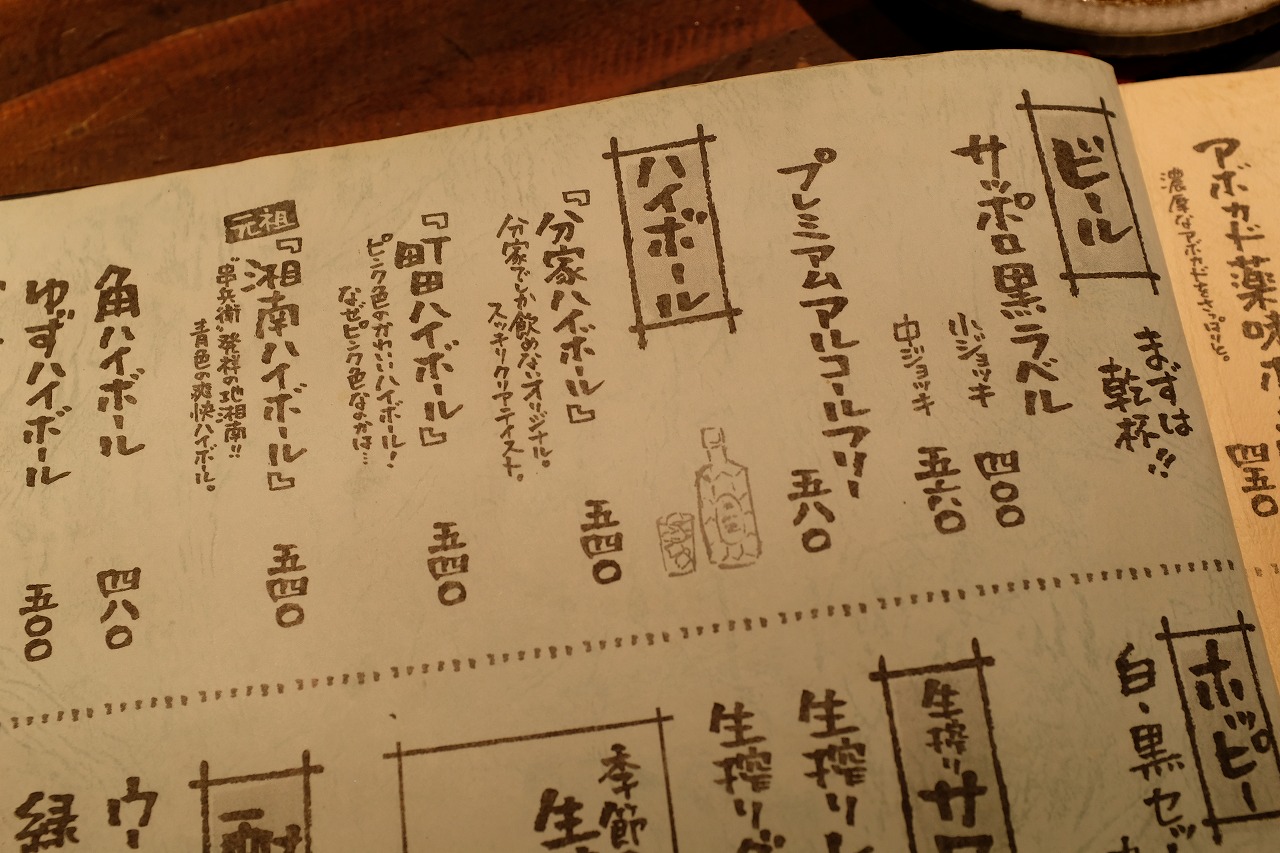 アボカド薬味
濃厚なアボカドをさっぱりと。
四五〇
ビール
まずは
乾杯!!
サッポロ黒ラベル
小ジョッキ 四〇〇
中ジョッキ 五六〇
プレミアムアルコールフリー 五八〇
ハイボール
『分家ハイボール』 五四〇
分家でしか飲めないオリジナル。
スッキリクリアテイスト。
『町田ハイボール』 五四〇
ピンク色のかわいいハイボール!
なぜピンク色なのかは…
元祖
『湘南ハイボール』 五四〇
"串兵衛"発祥の地湘南!!
青色の爽快ハイボール。
角ハイボール 四八〇
ゆずハイボール 五〇〇
ホッピー
白・黒セッ
生搾りサワ
生搾りレ
生搾りグ
季節
生
ウー
緑